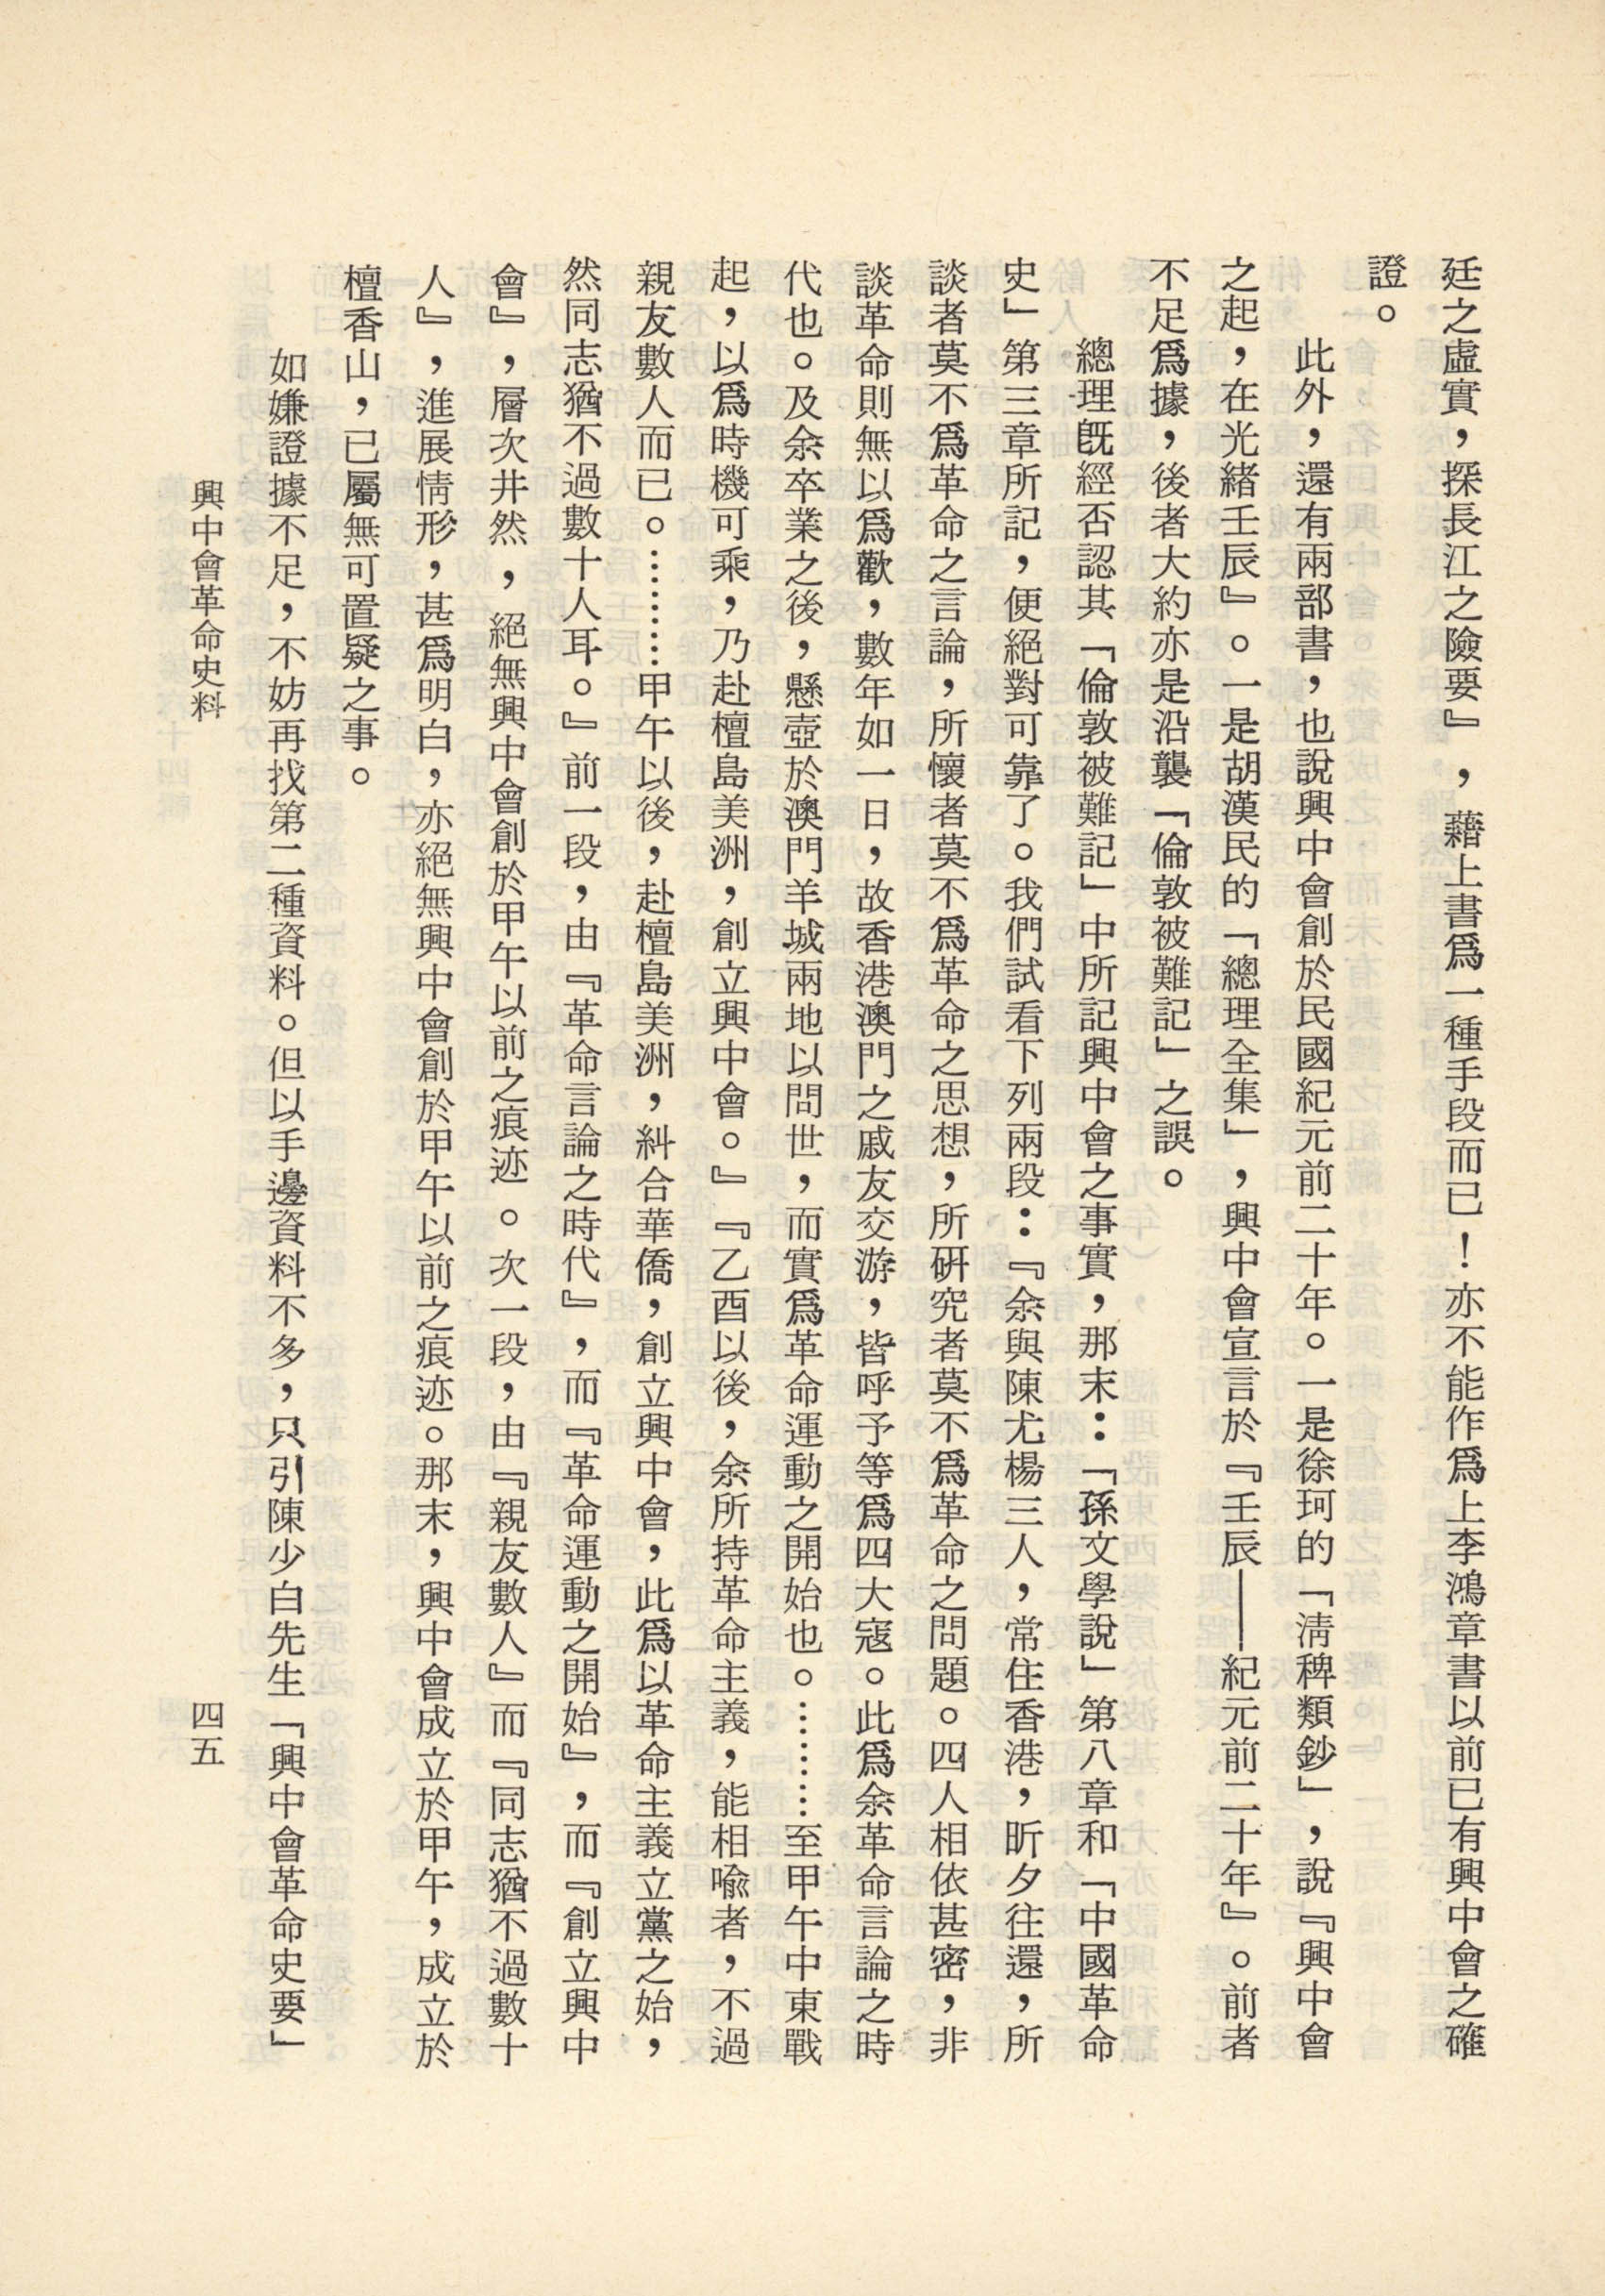 廷之虛實，探長江之險要』，藉上書爲一種手段而已！亦不能作爲上李鴻章書以前已有興中會之確
證。
此外，還有兩部書，也說興中會創於民國紀元前二十年。一是徐珂的「淸稗類鈔」，說『興中會
之起，在光緒壬辰』。一是胡漢民的「總理全集」，興中會宣言於『壬辰——紀元前二十年』。前者
不足爲據，後者大約亦是沿襲「倫敦被難記」之誤。
總理旣經否認其「倫敦被難記」中所記興中會之事實，那末：「孫文學說」第八章和「中國革命
史」第三章所記，便絕對可靠了。我們試看下列兩段：『余與陳尤楊三人，常住香港，昕夕往還，所
談者莫不爲革命之言論，所懷者莫不爲革命之思想，所硏究者莫不爲革命之問題。四人相依甚密，非
談革命則無以爲歡，數年如一日，故香港澳門之戚友交游，皆呼予等爲四大寇。此爲余革命言論之時
代也。及余卒業之後，懸壺於澳門羊城兩地以問世，而實爲革命運動之開始也。………至甲午中東戰
起，以爲時機可乘，乃赴檀島美洲，創立興中會。』『乙酉以後，余所持革命主義，能相喩者，不過
親友數人而已。………甲午以後，赴檀島美洲，糾合華僑，創立興中會，此爲以革命主義立黨之始，
然同志猶不過數十人耳。』前一段，由『革命言論之時代』，而『革命運動之開始』，而『創立興中
會』，層次井然，絕無興中會創於甲午以前之痕迹。次一段，由『親友數人』而『同志猶不過數十
人』，進展情形，甚爲明白，亦絕無興中會創於甲午以前之痕迹。那末，興中會成立於甲午，成立於
檀香山，已屬無可置疑之事。
如嫌證據不足，不妨再找第二種資料。但以手邊資料不多，只引陳少白先生「興中會革命史要」
興中會革命史料
四五